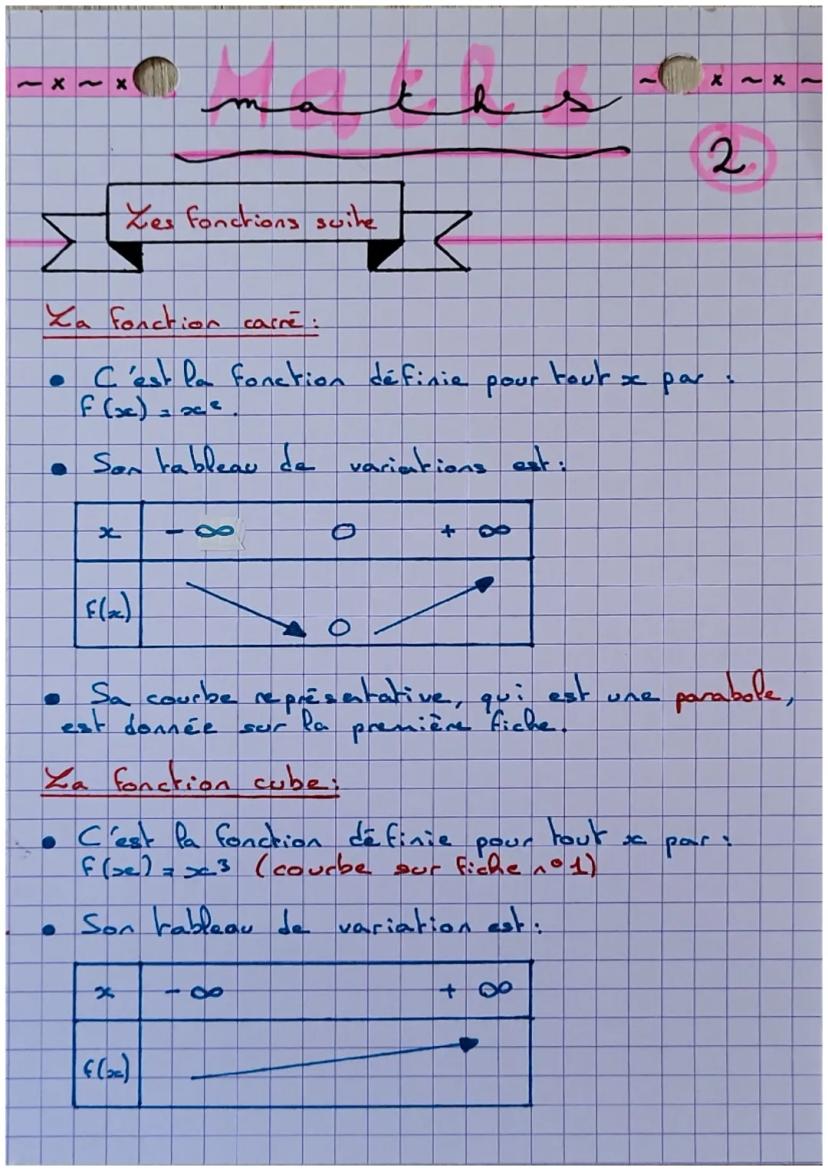 ~ x ~ x
Maths
~ x ~ x ~
maths
2
Les fonctions suite
La fonction carré :
• C'est la fonction définie pour tout x par :
f(x) = x².
• Son tableau de variations est :
x - ∞ 0 + ∞
f(x) 0
• Sa courbe représentative, qui est une parabole,
est donnée sur la première fiche.
La fonction cube :
• C'est la fonction définie pour tout x par :
f(x) = x³ (courbe sur fiche n°1)
• Son tableau de variation est :
x - ∞ + ∞
f(x)